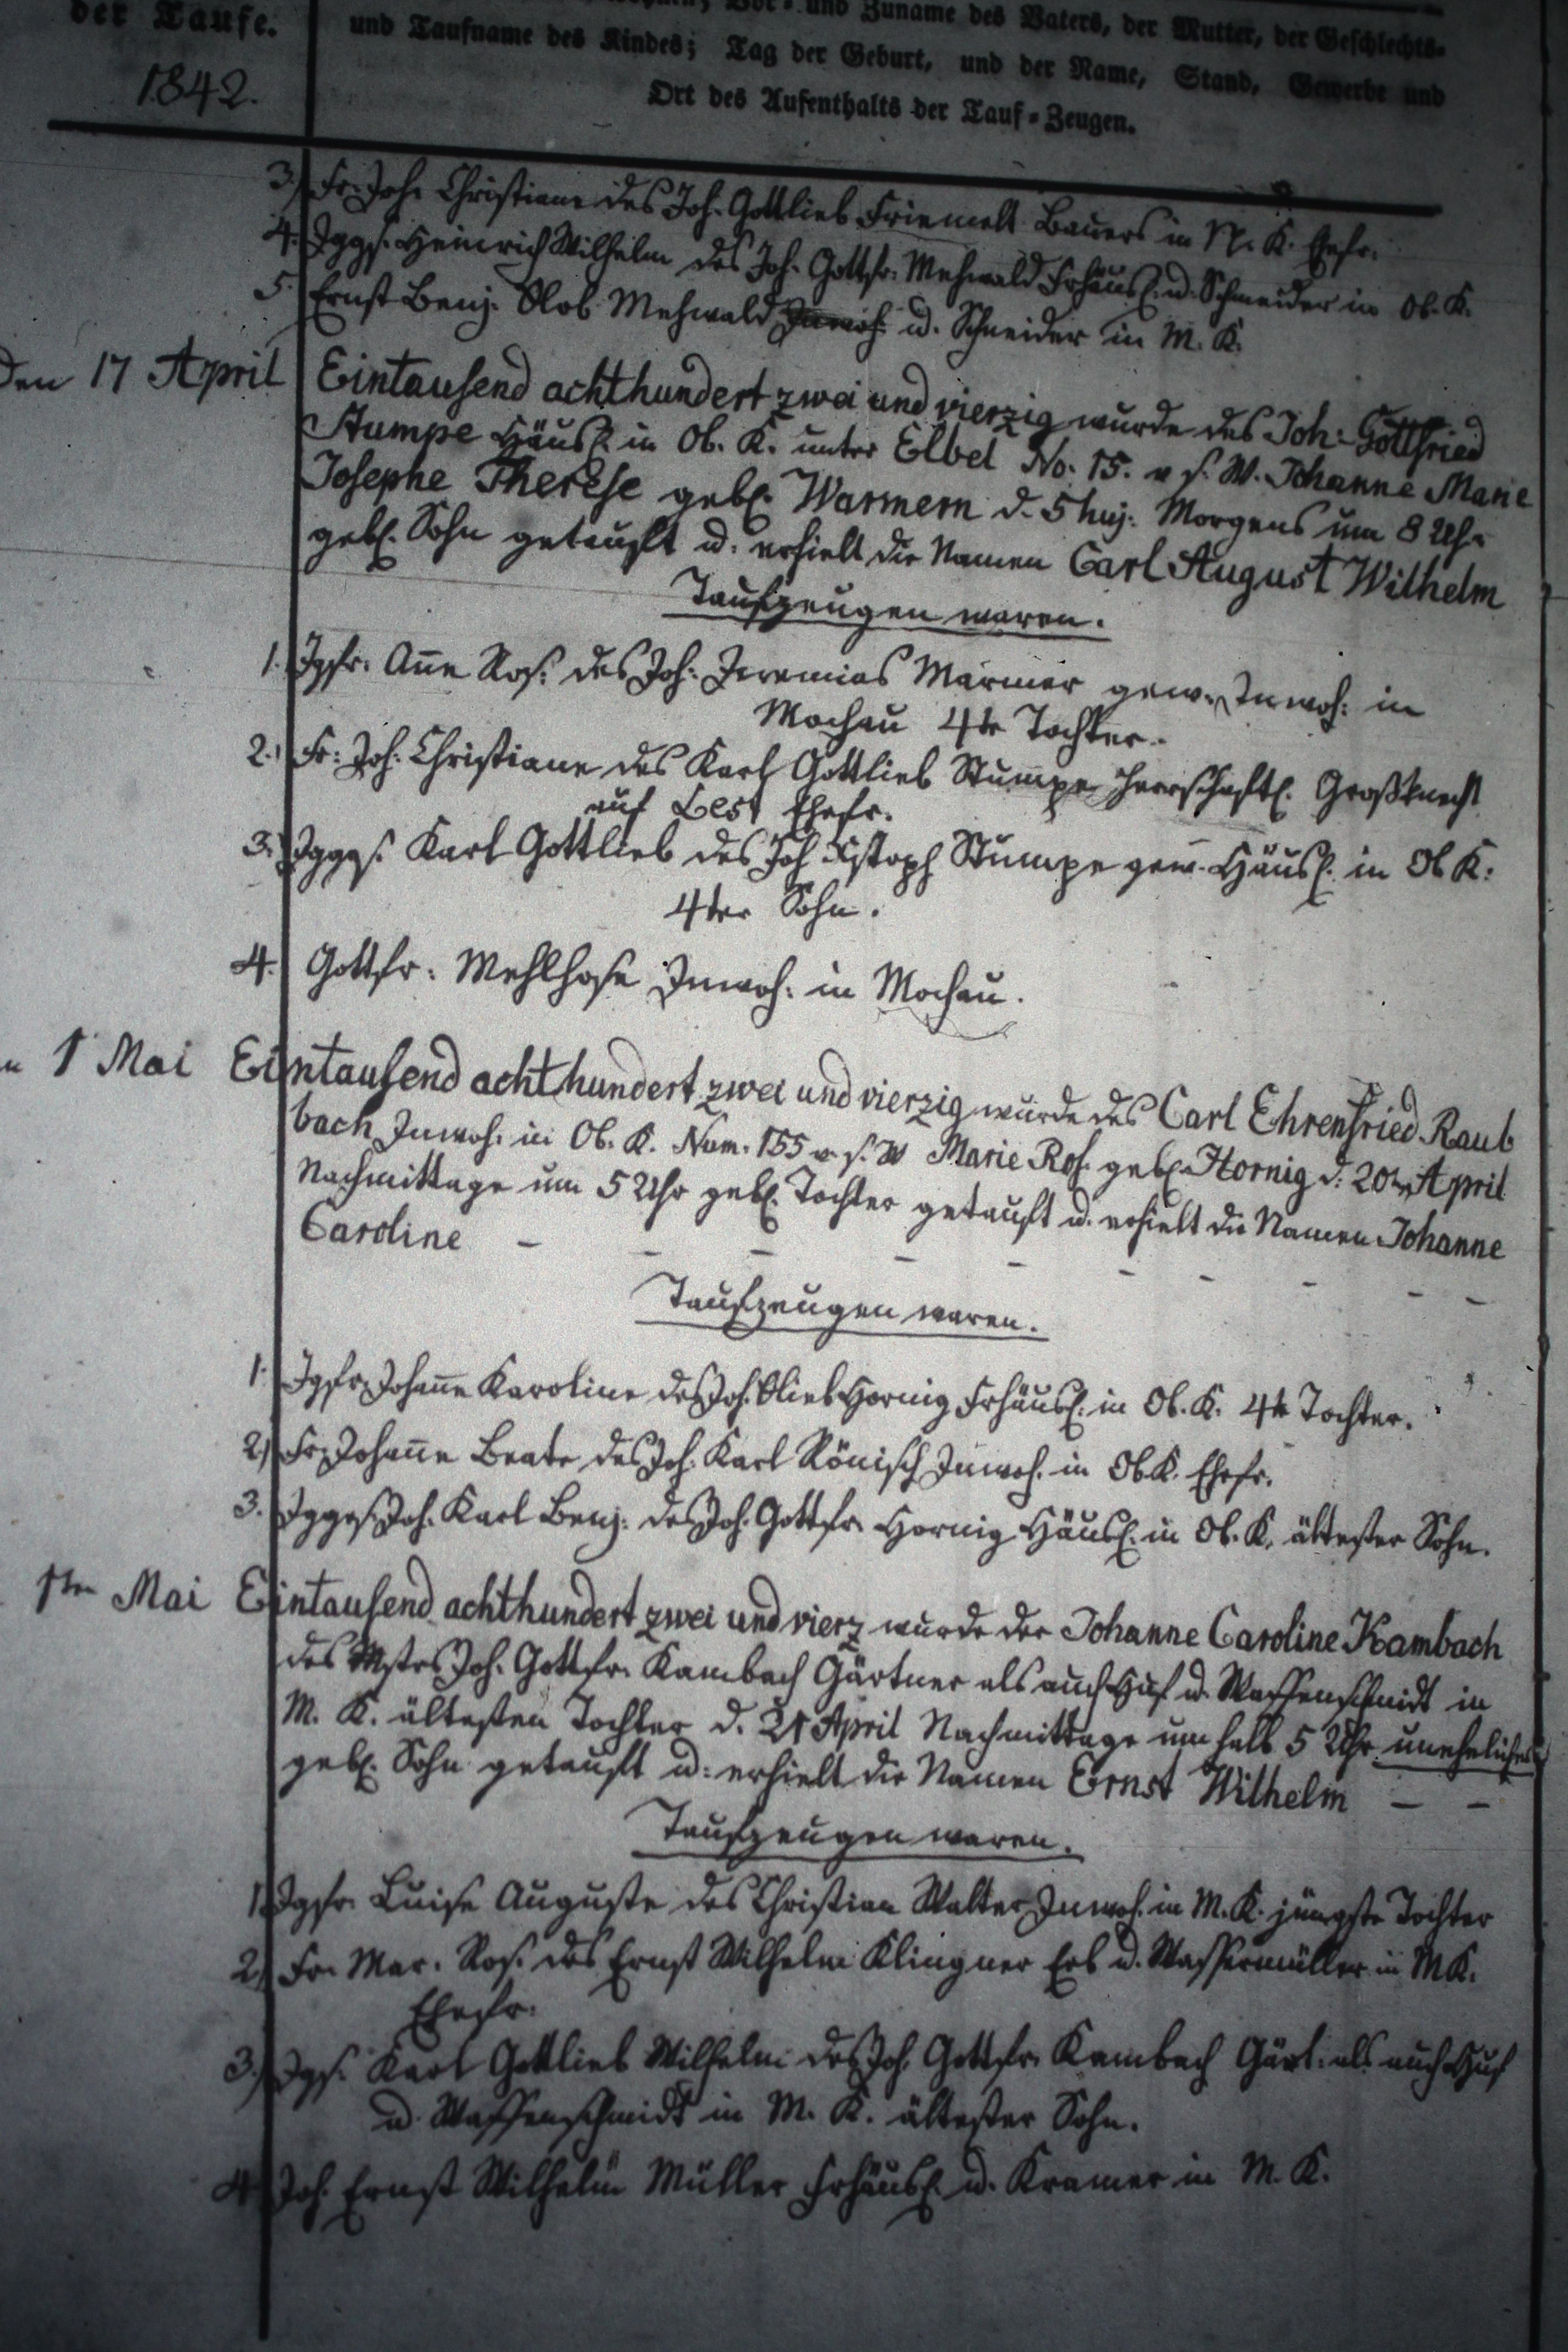 der Taufe.
Vor- und Zuname des Vaters, der Mutter, der Geschlechts-
und Taufname des Kindes; Tag der Geburt, und der Name, Stand, Gewerbe und
Ort des Aufenthalts der Tauf-Zeugen.
1842.
3.) Fr. Joh. Christiane des Joh. Gottlieb Friemelt Bauers in N. K. Ehefr.
4. Jggs. Heinrich Wilhelm des Joh. Gottfr. Mehwald Frhäusl. u. Schneider in Ob. K.
5. Ernst Benj. Glob Mehwald Inwoh. u. Schneider in M. K.
Den 17 April Eintausend achthundert zwei und vierzig wurde des Joh: Gottfried
Stumpe Häusl. in Ob. K. unter Elbel No: 15. v. s. W. Johanne Marie
Josephe Therese gebl. Warmern d. 5 huj: Morgens um 8 Uhr
gebl. Sohn getauft u. erhielt die Namen Carl August Wilhelm
Taufzeugen waren.
1. Jgfr. Añe Ros. des Joh: Jeremias Marmer gew. Inwoh: in
Mochau 4te Tochter.
2.) Fr: Joh. Christiane des Karl Gottlieb Stumpe Herrschaftl. Großknecht
auf Lest Ehefr.
3.) Jggs. Karl Gottlieb des Joh Xstoph Stumpe gew. Häusl. in Ob K:
4ter Sohn.
4. Gottfr: Mehlhose Inwoh: in Mochau.
1 Mai Eintausend achthundert zwei und vierzig wurde des Carl Ehrenfried Raub
bach Inwoh. in Ob. K. Num. 155 v. s. W Marie Ros. gebl. Hornig d: 20ten April
Nachmittage um 5 Uhr gebl. Tochter getauft u. erhielt die Namen Johanne
Caroline - - - - - - - - - -
Taufzeugen waren.
1. Jgfr. Johañe Karoline des Joh. Glieb Hornig Frhäusl. in Ob. K. 4te Tochter.
2.) Fr. Johañe Beate des Joh. Karl Rönisch Inwoh. in Ob K. Ehefr.
3. Jggs. Joh. Karl Benj: des Joh. Gottfr. Hornig Häusl. in Ob. K. ältester Sohn.
1ten Mai Eintausend achthundert zwei und vierz wurde der Johanne Caroline Kambach
des Mstrs Joh. Gottfr. Kambach Gärtner als auch Huf u. Waffenschmidt in
M. K. ältesten Tochter d. 21 April Nachmittage um halb 5 Uhr unehelicher
gebl. Sohn getauft u: erhielt die Namen Ernst Wilhelm - -
Taufzeugen waren.
1. Jgfr. Luise Auguste des Christian Walter Inwoh. in M. K. jüngste Tochter
2.) Fr. Mar. Ros. des Ernst Wilhelm Klingner Erb u. Wassermüller in M K.
Ehefr.
3.) Jgs. Karl Gottlieb Wilhelm des Joh. Gottfr. Kambach Gärt. als auch Huf
u. Waffenschmidt in M. K. ältester Sohn.
4. Joh. Ernst Wilhelm Müller Frhäusl. u. Kramer in M. K.